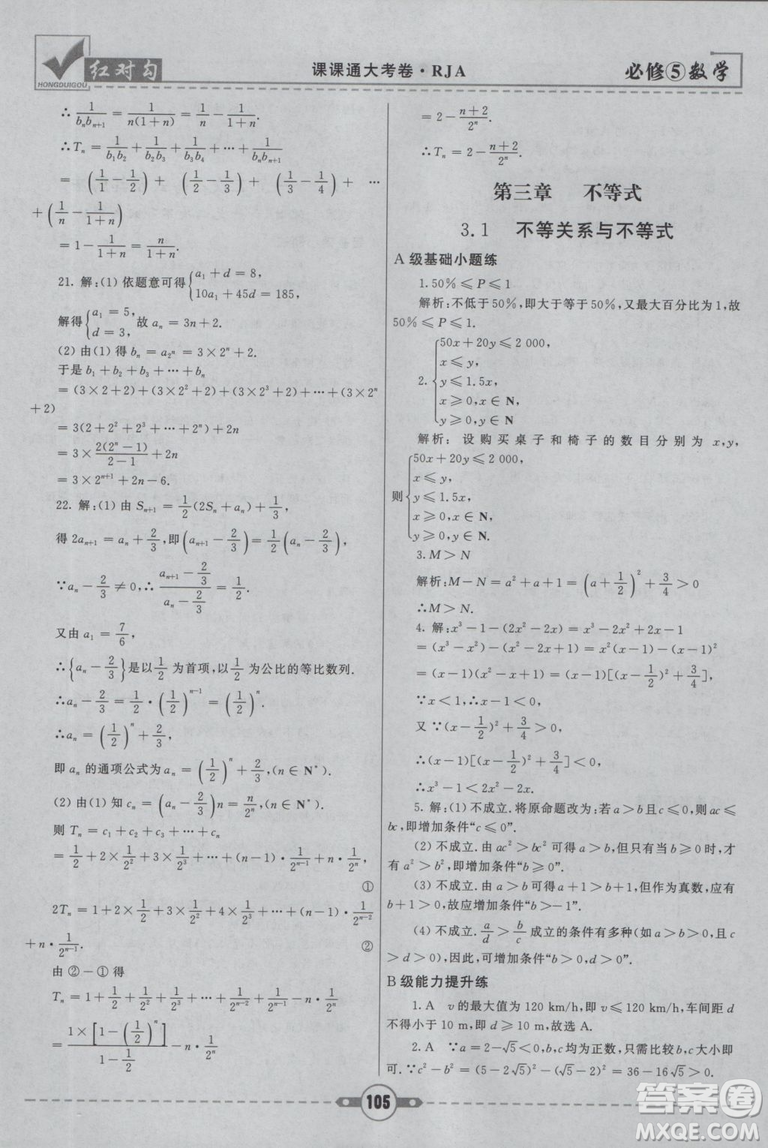 HONGDUIGOU
红对勾
课课通大考卷·RJA
必修⑤数学
∴1/(bₙbₙ₊₁)=1/(n(1+n))=1/n-1/(1+n).
∴Tₙ=1/(b₁b₂)+1/(b₂b₃)+1/(b₃b₄)+…+1/(bₙbₙ₊₁)
=(1/1-1/2)+(1/2-1/3)+(1/3-1/4)+…
+(1/n-1/(1+n))
=1-1/(1+n)=n/(1+n).
21. 解:(1) 依题意可得{a₁+d=8, 10a₁+45d=185,
解得{a₁=5, d=3, 故 aₙ=3n+2.
(2) 由(1)得 bₙ=a₂ⁿ=3×2ⁿ+2.
于是 b₁+b₂+b₃+…+bₙ
=(3×2+2)+(3×2²+2)+(3×2³+2)+…+(3×2ⁿ
+2)
=3(2+2²+2³+…+2ⁿ)+2n
=3×2(2ⁿ-1)/(2-1)+2n
=3×2ⁿ⁺¹+2n-6.
22. 解:(1) 由 Sₙ₊₁=1/2(2Sₙ+aₙ)+1/3,
得 2aₙ₊₁=aₙ+2/3,即(aₙ₊₁-2/3)=1/2(aₙ-2/3).
∵aₙ-2/3≠0,∴(aₙ₊₁-2/3)/(aₙ-2/3)=1/2.
又由 a₁=7/6,
∴{aₙ-2/3}是以1/2为首项,以1/2为公比的等比数列.
∴aₙ-2/3=1/2·(1/2)ⁿ⁻¹=(1/2)ⁿ.
∴aₙ=(1/2)ⁿ+2/3,
即 aₙ 的通项公式为 aₙ=(1/2)ⁿ+2/3,(n∈N*).
(2) 由(1)知 cₙ=(aₙ-2/3)n=n/2ⁿ,(n∈N*).
则 Tₙ=c₁+c₂+c₃+…+cₙ
=1×1/2+2×1/2²+3×1/2³+…+(n-1)·1/2ⁿ⁻¹+n·1/2ⁿ,
①
2Tₙ=1+2×1/2+3×1/2²+4×1/2³+…+(n-1)·1/2ⁿ⁻²
+n·1/2ⁿ⁻¹.
②
由 ②-① 得
Tₙ=1+1/2+1/2²+1/2³+…+1/2ⁿ⁻¹-n·1/2ⁿ
=1×[1-(1/2)ⁿ]/(1-1/2)-n/2ⁿ
=2-(n+2)/2ⁿ.
∴Tₙ=2-(n+2)/2ⁿ.
第三章 不等式
3.1 不等关系与不等式
A 级基础小题练
1. 50%≤P≤1
解析:不低于 50%,即大于等于 50%,又最大百分比为 1,故
50%≤P≤1.
2. {50x+20y≤2 000, x≤y, y≤1.5x, x≥0,x∈N, y≥0,y∈N
解析:设购买桌子和椅子的数目分别为 x,y,
则{50x+20y≤2 000, x≤y, y≤1.5x, x≥0,x∈N, y≥0,y∈N.
3. M>N
解析:M-N=a²+a+1=(a+1/2)²+3/4>0
∴M>N.
4. 解:x³-1-(2x²-2x)=x³-2x²+2x-1
=(x³-x²)-(x²-2x+1)=x²(x-1)-(x-1)²
=(x-1)(x²-x+1)=(x-1)[(x-1/2)²+3/4],
∵x<1,∴x-1<0,
又∵(x-1/2)²+3/4>0,
∴(x-1)[(x-1/2)²+3/4]<0.
∴x³-1<2x²-2x.
5. 解:(1) 不成立.将原命题改为:若 a>b 且 c≤0,则 ac≤
bc,即增加条件“c≤0”.
(2) 不成立.由 ac²>bc² 可得 a>b,但只有 b≥0 时,才有
a²>b²,即增加条件“b≥0”.
(3) 不成立.由 a>b 可得 a+1>b+1,但作为真数,应有
b+1>0,故应增加条件“b>-1”.
(4) 不成立.a/d>b/c 成立的条件有多种(如 a>b>0,c>
d>0),因此,可增加条件“b>0,d>0”.
B 级能力提升练
1. A v 的最大值为 120 km/h,即 v≤120 km/h,车间距 d
不得小于 10 m,即 d≥10 m,故选 A.
2. A ∵a=2-√5<0,b,c 均为正数,只需比较 b,c 大小即
可.∵b²-c²=(√5-2)²-(5-2√5)²=…=36-16√5>0,
105
答案圈
MXQE.COM